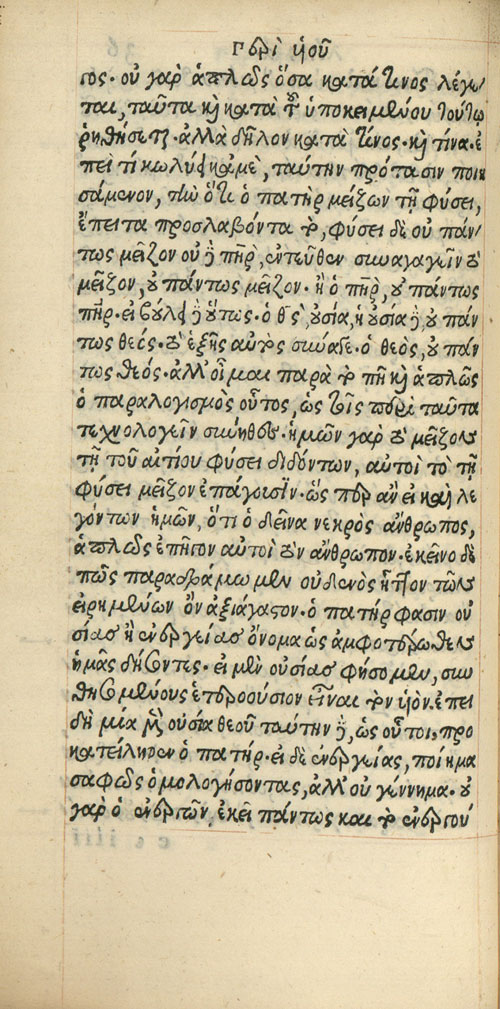 Περὶ ὑιοῦ
τος· οὐ γὰρ ἁπλῶς ὅσα κατά τινος λέγε
ται, ταῦτα καὶ κατὰ τοῦ ὑποκειμένου τούτῳ
ῥηθήσεται· ἀλλὰ δῆλον κατὰ τίνος· καὶ τίνα· ἐ
πεὶ τί κωλύει κἀμὲ, ταύτην πρότασιν ποιη
σάμενον, τὴν ὅτι ὁ πατὴρ μείζων τῇ φύσει,
ἔπειτα προσλαβόντα τὸ, φύσει δὲ οὐ πάν
τως μεῖζον οὐδὲ πατὴρ, ἐντεῦθεν συναγαγεῖν τὸ
μεῖζον, οὐ πάντως μεῖζον· ἢ ὁ πατὴρ, οὐ πάντως
πατήρ· εἰ βούλει δὲ οὕτως· ὁ θεὸς, οὐσία, ἡ οὐσία δὲ, οὐ πάν
τως θεός· τὸ ἑξῆς αὐτὸς σύναγε· ὁ θεὸς, οὐ πάν
τως θεός· ἀλλ' οἶμαι παρὰ τὸ πῆ καὶ ἁπλῶς
ὁ παραλογισμὸς οὗτος, ὡς τοῖς περὶ ταῦτα
τεχνολογεῖν σύνηθες· ἡμῶν γὰρ τὸ μεῖζον
τῇ τοῦ αἰτίου φύσει διδόντων, αὐτοὶ τὸ τῇ
φύσει μεῖζον ἐπάγουσιν· ὥς περ ἂν εἰ καὶ λε
γόντων ἡμῶν, ὅτι ὁ δεῖνα νεκρὸς ἄνθρωπος,
ἁπλῶς ἐπῆγον αὐτοὶ τὸν ἄνθρωπον· ἐκεῖνο δὲ
πῶς παραδράμωμεν οὐδενὸς ἧττον τῶν
εἰρημένων ὂν ἀξιάγαστον· ὁ πατήρ φασιν οὐ
σίας ἢ ἐνεργείας ὄνομα ὡς ἀμφοτέρωθεν
ἡμᾶς δήσοντες· εἰ μὲν οὐσίας φήσομεν, συν
θησομένους ἑτεροούσιον εἶναι τὸν ὑιὸν· ἐπει
δὴ μία μὲν οὐσία θεοῦ ταύτην δὲ, ὡς οὗτοι, προ
κατείληφεν ὁ πατήρ· εἰ δὲ ἐνεργείας, ποίημα
σαφῶς ὁμολογήσοντας, ἀλλ' οὐ γέννημα· οὗ
γὰρ ὁ ἐνεργῶν, ἐκεῖ πάντως και τὸ ἐνεργού